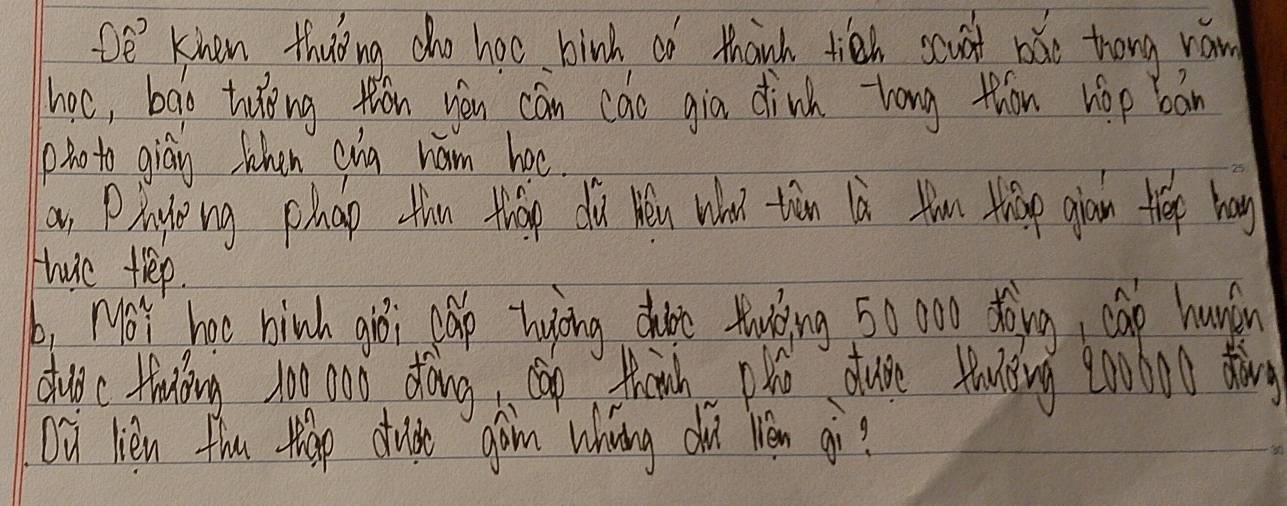 Để khen thưởng cho học sinh có thành tích xuất sắc trong năm
học, báo trưởng thôn yêu cần các gia đình trong thôn nộp bản
photo giấy khen của năm học.
a, Phương pháp thu thập dữ liệu như trên là thu thập gián tiếp hay
trực tiếp.
b, Mỗi học sinh giỏi cấp trường được thưởng 50 000 đồng, cấp huyện
được thưởng 100 000 đồng, cấp thành phố được thưởng 200000 đồng
Dữ liệu thu thập được gồm những dữ liệu gì?
25
30